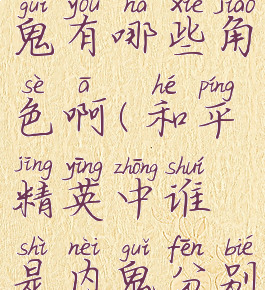 guǐ yǒu nǎ xiē jiǎo
鬼有哪些角
sè ā hé píng
色啊(和平
jīng yīng zhōng shuí
精英中谁
shì nèi guǐ fēn bié
是内鬼分别